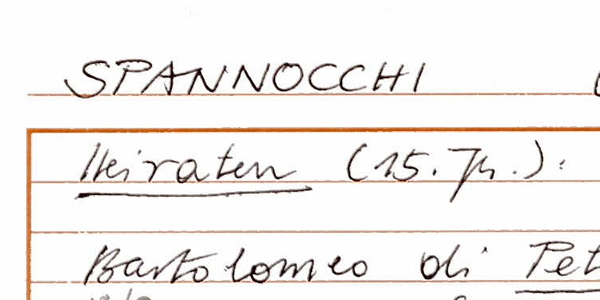 SPANNOCCHI
Heiraten (15. Jh.):
Bartolomeo di Pet